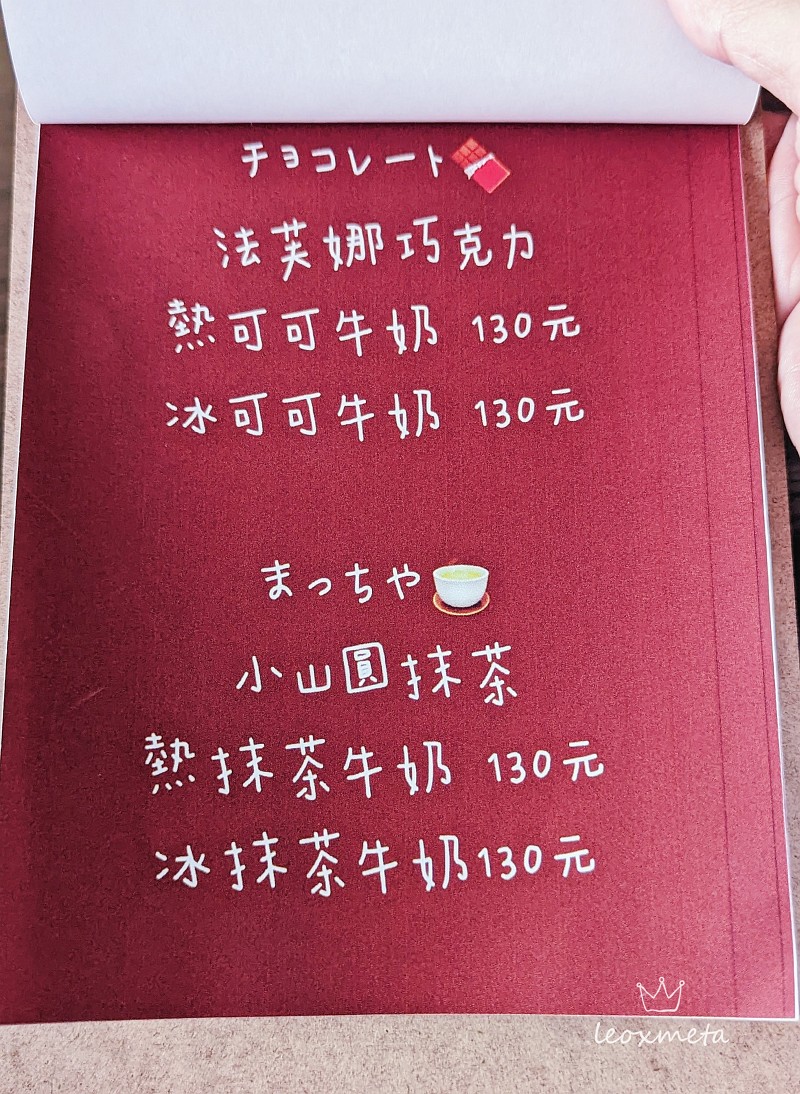 チョコレート
法芙娜巧克力
熱可可牛奶 130元
冰可可牛奶 130元
まっちゃ
小山圓抹茶
熱抹茶牛奶 130元
冰抹茶牛奶130元
leoxmeta